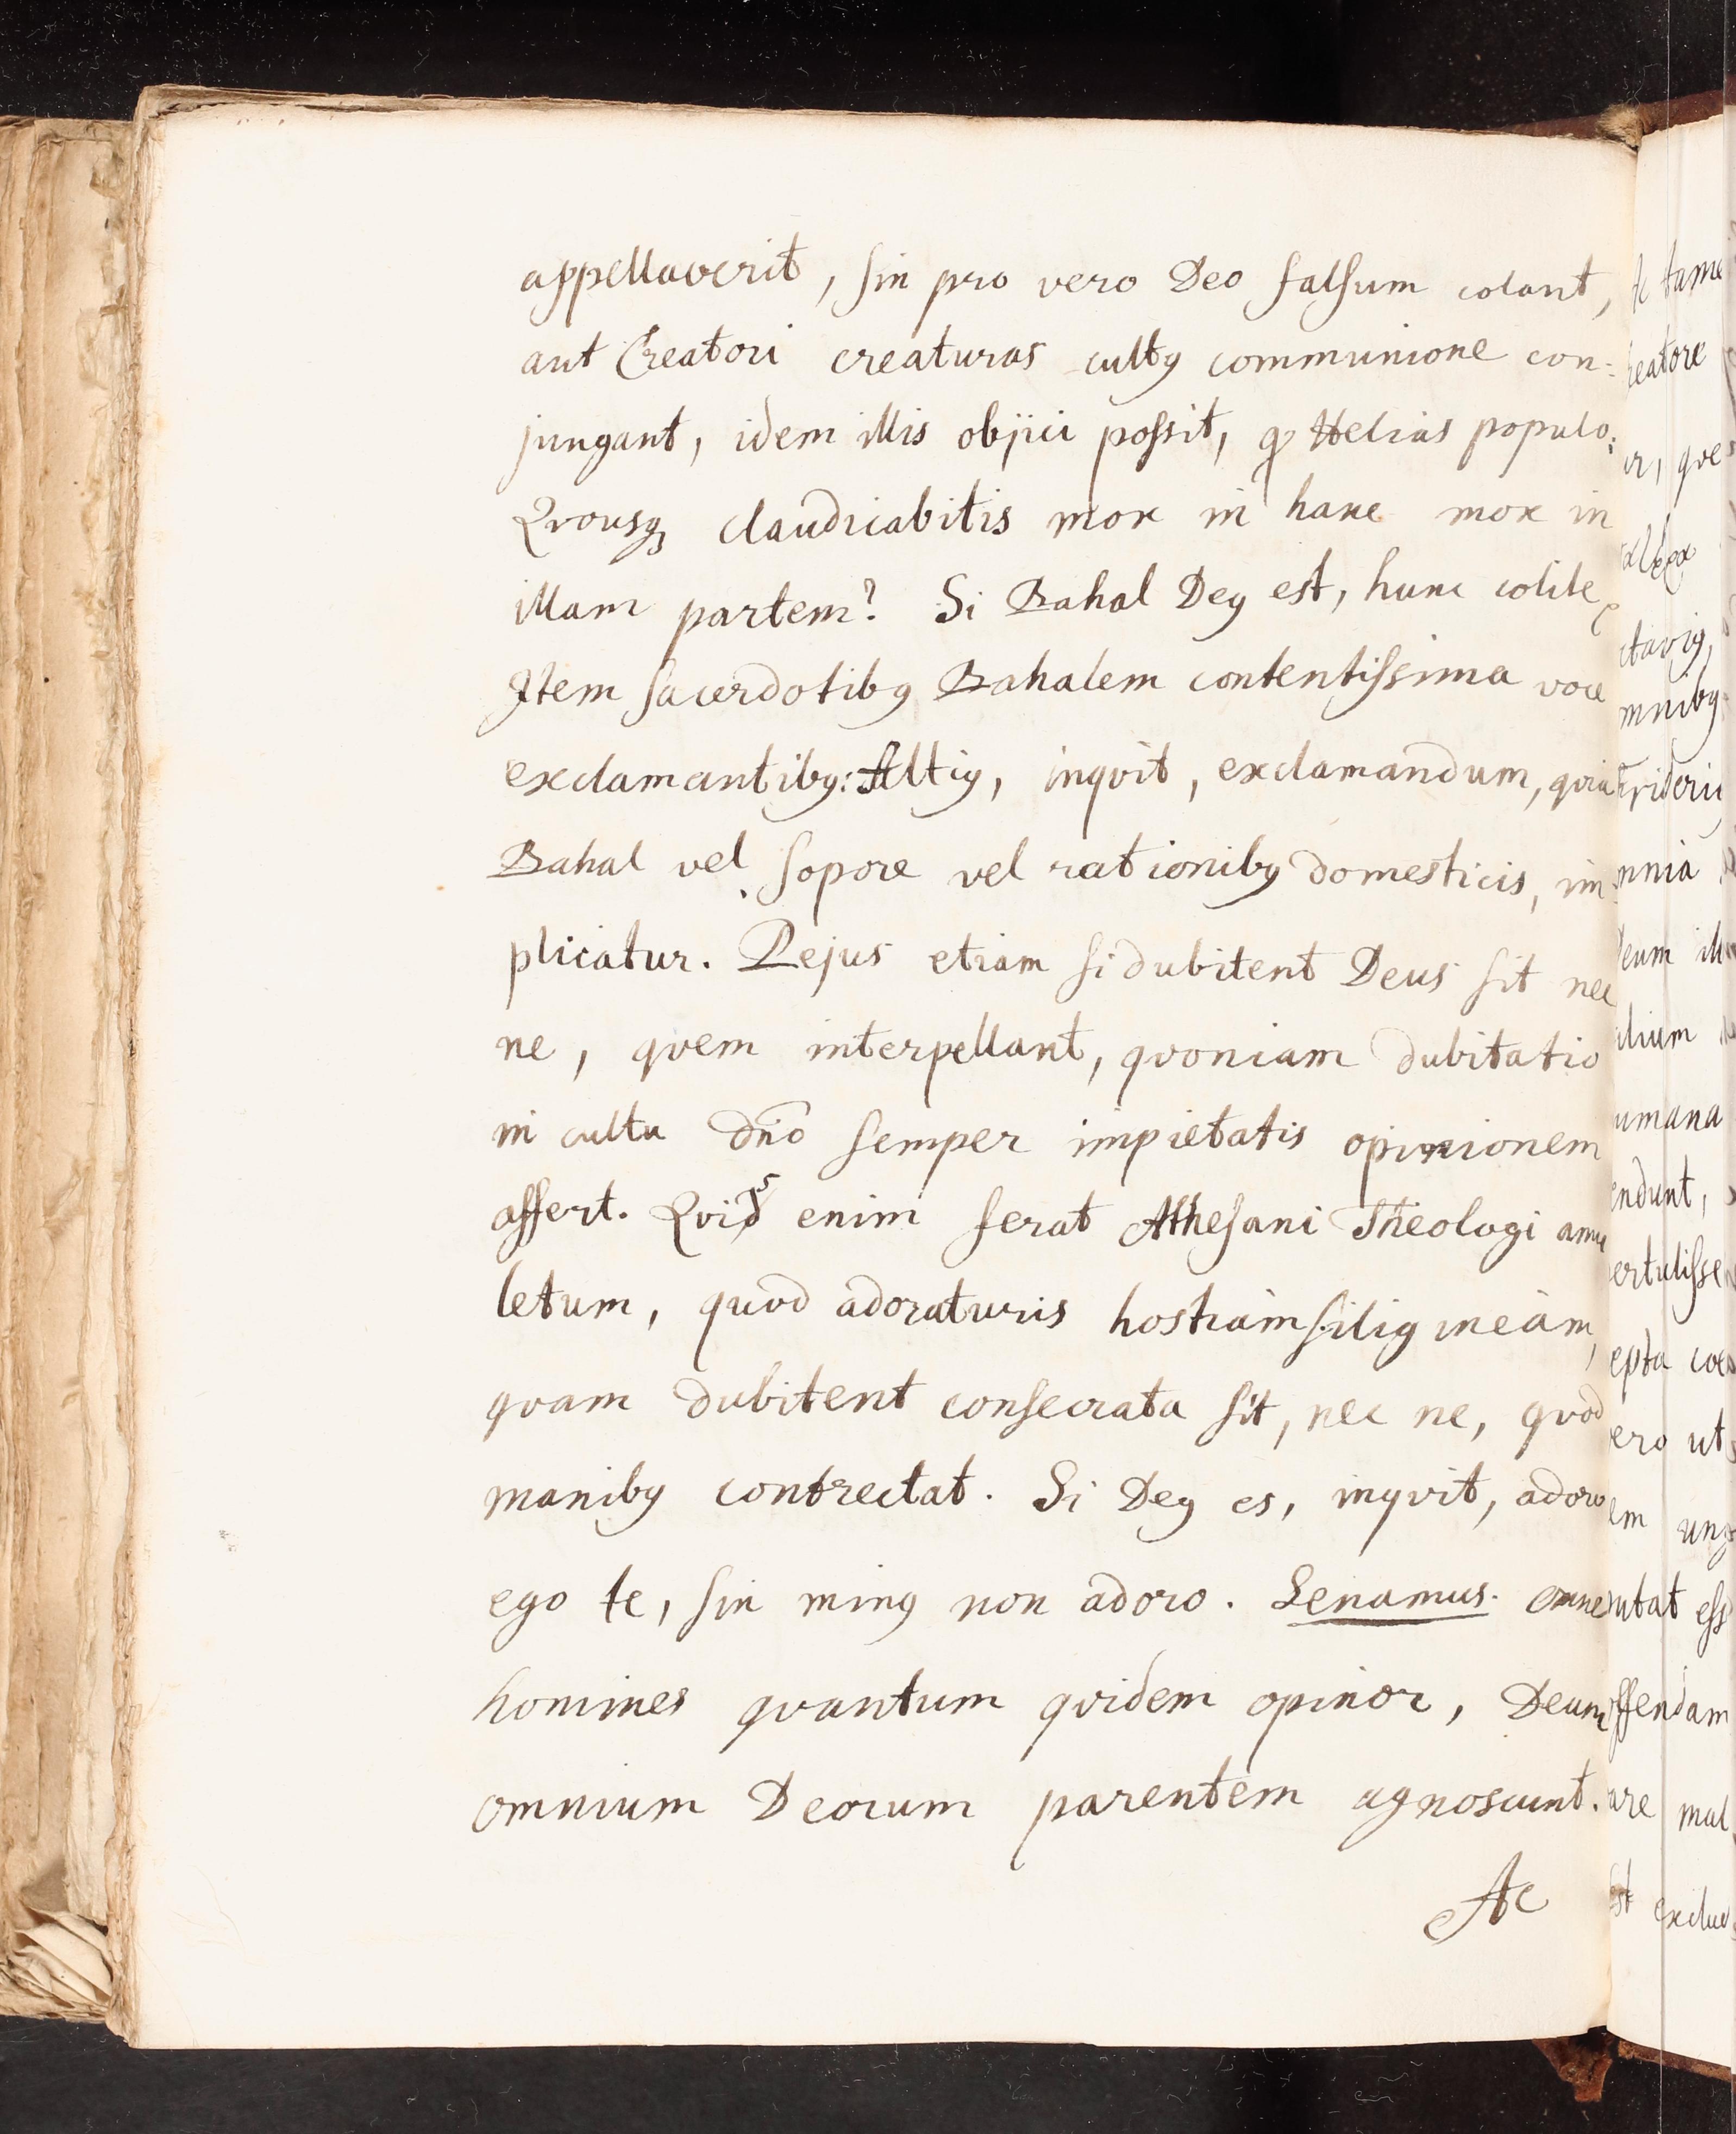 appellaverit, sin pro vero Deo falsum colant,
aut Creatori creaturas cultꝰ communione con-
jungant, idem illis objici possit, qꝫ Helias populo:
Qvousqꝫ claudicabitis mox in hanc mox in
illam partem? Si Bahal Deꝰ est, hunc colite
Item sacerdotibꝰ Bahalem contentissima voce
exclamantibꝰ: Altiꝰ, inqvit, exclamandum, qvia
Bahal vel sopore vel rationibꝰ domesticis, im-
plicatur. Pejus etiam si dubitent Deus sit nec
ne, qvem interpellant, qvoniam dubitatio
in cultu dn̄o semper impietatis opinionem
affert. Qvis enim ferat Athesani Theologi amu
letum, quod adoraturis hostiam siligineam,
qvam dubitent consecrata sit, nec ne, qvod
manibꝰ contrectat. Si Deꝰ es, inqvit, adoro
ego te, sin minꝰ non adoro. Senamus. Omne
homines qvantum qvidem opinor, Deum
omnium Deorum parentem agnoscunt.
Ac
Ac tame
reatore
ctaviꝰ,
mnibꝰ
mnia
umana
endunt,
ertulisse
epta
ero ut
em unꝰ
utat ess
offendam
are mal
est exclu